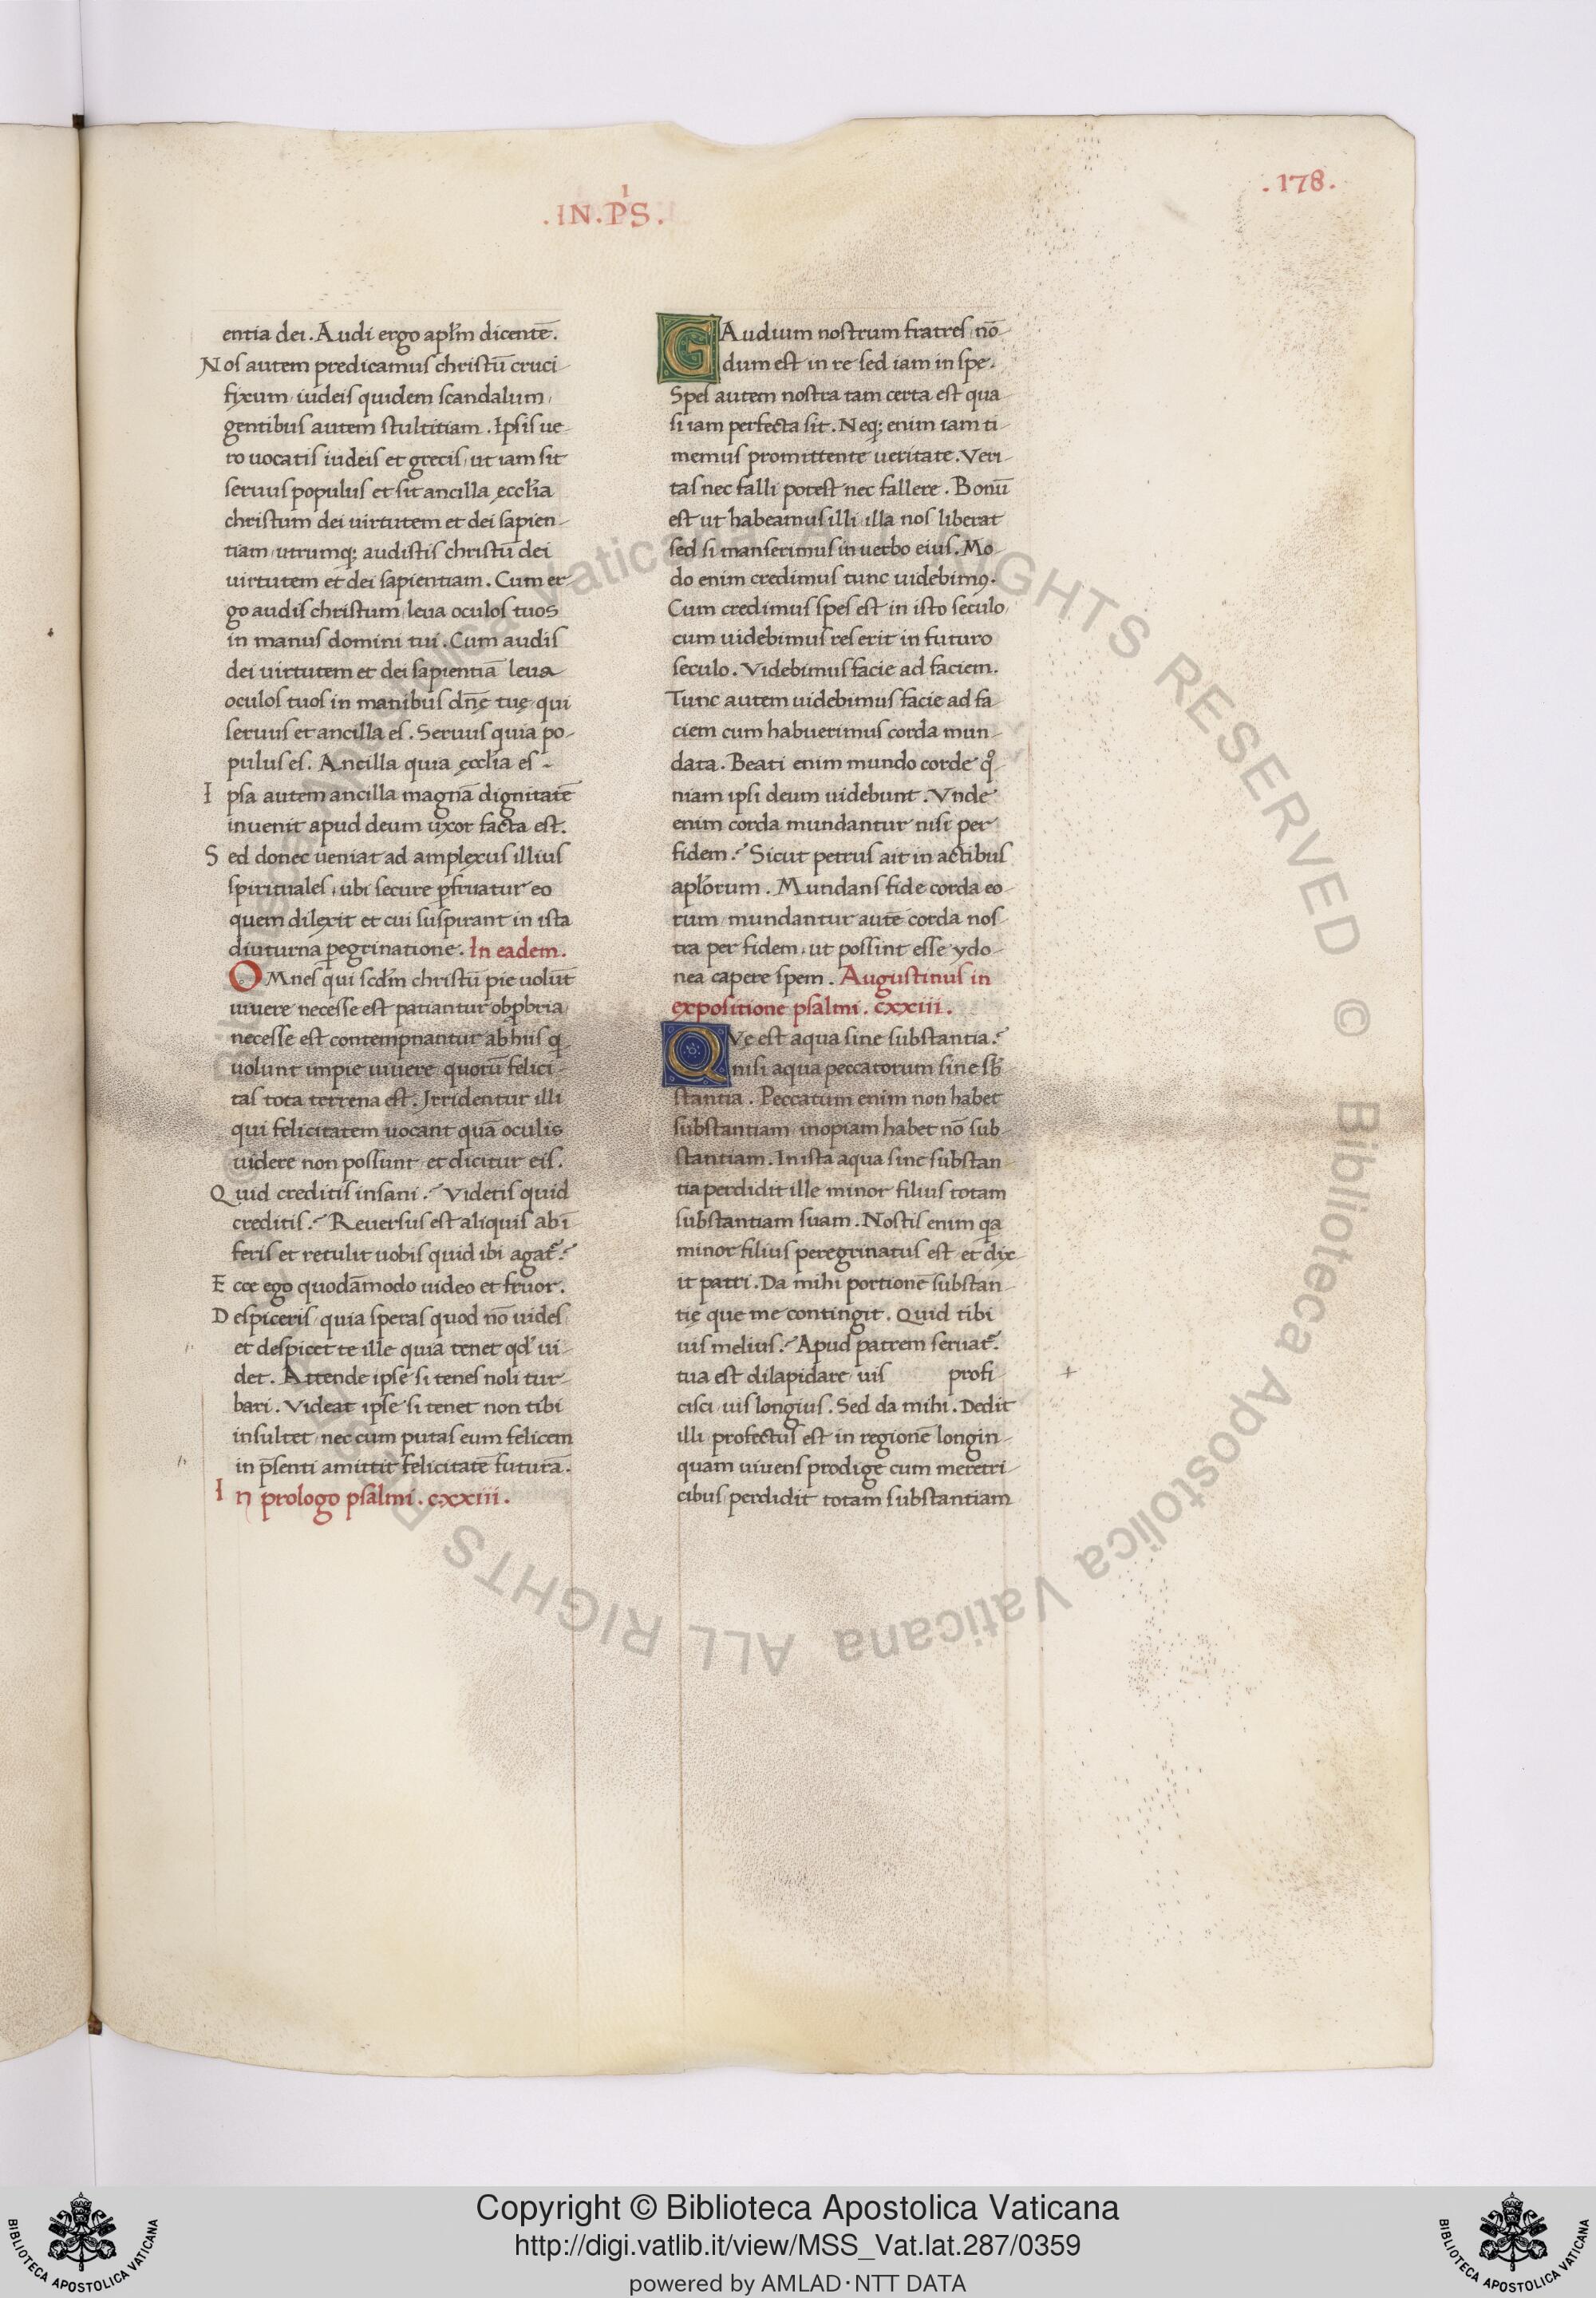 .178.
.IN.PˡS.
entia dei. Audi ergo apl̄m dicentē.
Nos autem predicamus christū cruci-
fixum, iudeis quidem scandalum,
gentibus autem stultitiam. Ipsis ue-
ro uocatis iudeis et grecis, ut iam sit
seruus populus et sit ancilla ęccl̄ia
christum dei uirtutem et dei sapien-
tiam, utrumq; audistis christū dei
uirtutem et dei sapientiam. Cum er-
go audis christum, leua oculos tuos
in manus domini tui. Cum audis
dei uirtutem et dei sapientiā leua
oculos tuos in manibus dn̄ę tuę, qui
seruus et ancilla es. Seruus quia po-
pulus es. Ancilla quia ęccl̄ia es.
Ipsa autem ancilla magnā dignitatē
inuenit apud deum uxor facta est.
Sed donec ueniat ad amplexus illius
spirituales, ubi secure ꝑfruatur eo
quem dilexit et cui suspirant in ista
diuturna ꝑegrinatione. In eadem.
OMnes qui scd̄m christū pie uolūt
uiuere necesse est patiantur obꝓbria
necesse est contempnantur ab hiis q-
uolunt impie uiuere, quorū felici-
tas tota terrena est. Irridentur illi
qui felicitatem uocant quā oculis
uidere non possunt, et dicitur eis.
Quid creditis insani? Videtis quid
creditis? Reuersus est aliquis ab ī-
feris et retulit uobis quid ibi agat̄?
Ecce ego quodāmodo uideo et fruor.
Despiceris, quia speras quod nō uides,
et despicet te ille quia tenet qđ ui-
det. Attende ipse si tenes noli tur-
bari. Videat ipse si tenet non tibi
insultet, nec cum putas eum felicem
in p̄senti amittit felicitatē futurā.
In prologo psalmi. cxxiii.
GAudium nostrum fratres, nō-
dum est in re sed iam in spe.
Spes autem nostra tam certa est qua-
si iam perfecta sit. Neq; enim iam ti-
memus promittente ueritate. Veri-
tas nec falli potest nec fallere. Bonū
est ut habeamus illi, illa nos liberat
sed si manserimus in uerbo eius. Mo-
do enim credimus tunc uidebimꝰ.
Cum credimus spes est in isto seculo,
cum uidebimus res erit in futuro
seculo. Videbimus facie ad faciem.
Tunc autem uidebimus facie ad fa-
ciem cum habuerimus corda mun-
data. Beati enim mundo corde qͦ-
niam ipsi deum uidebunt. Vnde
enim corda mundantur nisi per
fidem? Sicut petrus ait in actibus
apl̄orum. Mundans fide corda eo-
rum, mundantur autē corda nos-
tra per fidem, ut possint esse ydo-
nea capere spem. Augustinus in
expositione psalmi. cxxiii.
QVe est aqua sine substantia?
nisi aqua peccatorum sine sb̄-
stantia. Peccatum enim non habet
substantiam, inopiam habet nō sub-
stantiam. In ista aqua sine substan-
tia perdidit ille minor filius totam
substantiam suam. Nostis enim qa
minor filius peregrinatus est et dix-
it patri. Da mihi portionē substan-
tię que me contingit. Quid tibi
uis melius? Apud patrem seruat̄.
tua est dilapidare uis profi-
cisci uis longius. Sed da mihi. Dedit
illi, profectus est in regionē longin-
quam uiuens prodige cum meretri-
cibus, perdidit totam substantiam
Copyright © Biblioteca Apostolica Vaticana
http://digi.vatlib.it/view/MSS_Vat.lat.287/0359
powered by AMLAD·NTT DATA
BIBLIOTECA APOSTOLICA VATICANA
BIBLIOTECA APOSTOLICA VATICANA
© Biblioteca Apostolica Vaticana ALL RIGHTS RESERVED
© Biblioteca Apostolica Vaticana ALL RIGHTS RESERVED